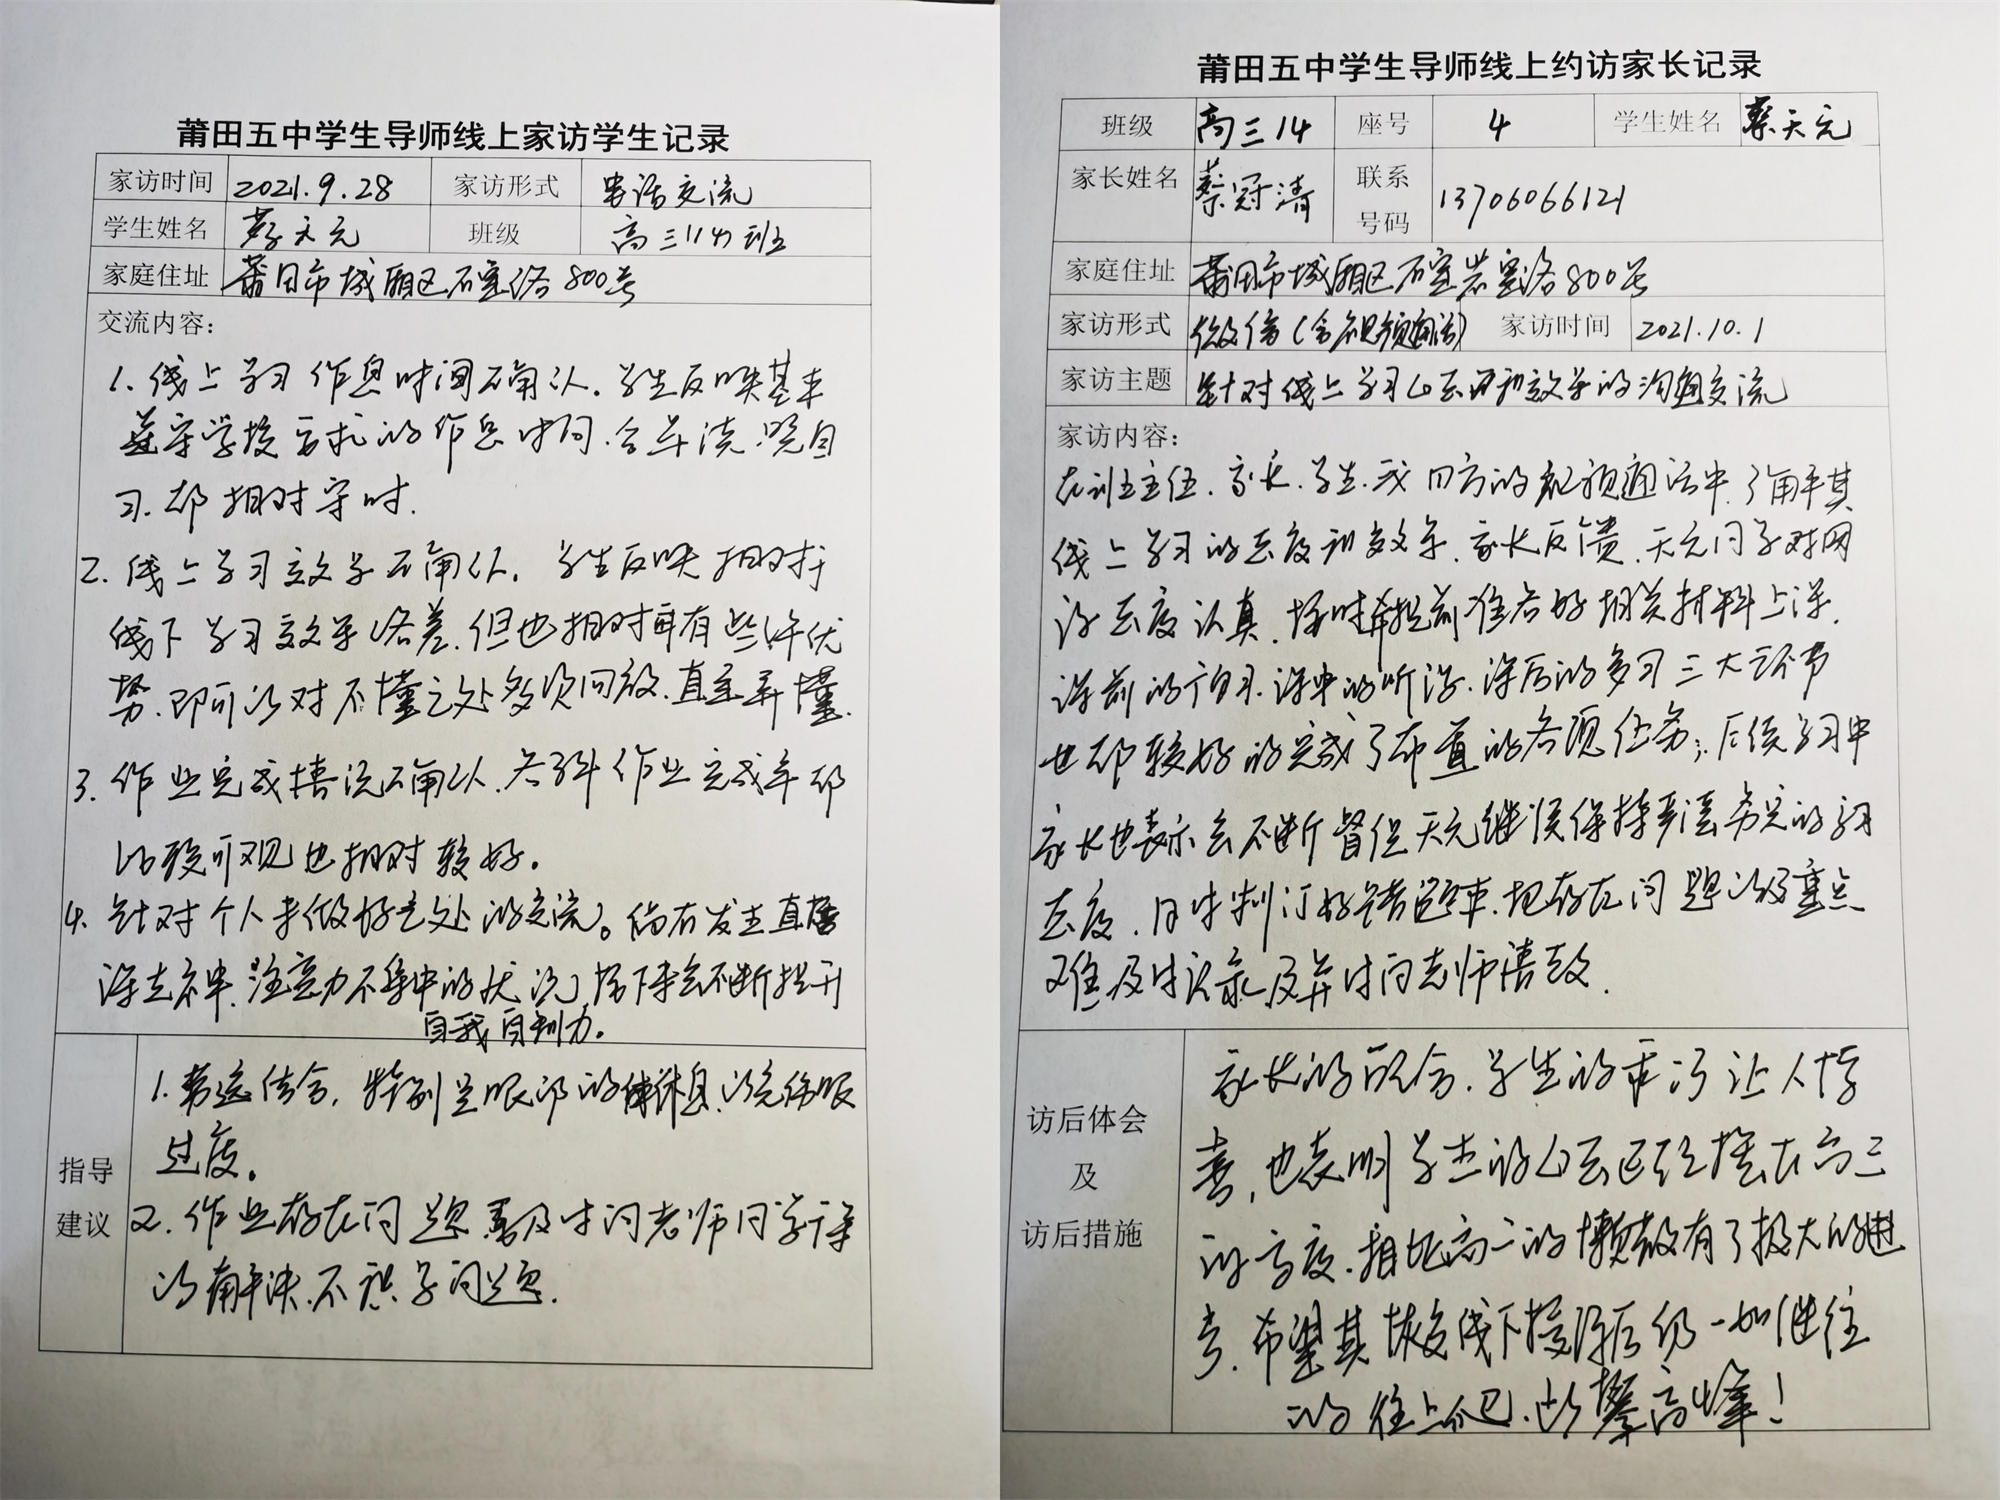 莆田五中学生导师线上家访学生记录
家访时间 2021.9.28 家访形式 电话交流
学生姓名 蔡天元 班级 高三(14)班
家庭住址 莆田市城厢区石室路800号
交流内容：
1. 线上学习作息时间确认. 学生反映基本
遵守学校安排的作息时间.含早读.晚自
习.都相对守时.
2. 线上学习效率确认. 学生反映相对于
线下学习效率略差.但也相对具有些许优
势.即可以对不懂之处多次回放.直至弄懂.
3. 作业完成情况确认.各科作业完成率都
比较可观也相对较好。
4. 针对个人未做好之处的交流。偶有发生直播
课走神.注意力不集中的状况,接下来会不断提升
自我自制力。
指导
建议
1. 劳逸结合, 特别是眼部的休息.以免伤眼
过度。
2. 作业存在问题要及时问老师同学
以解决.不积累问题.
莆田五中学生导师线上约访家长记录
班级 高三14 座号 4 学生姓名 蔡天元
家长姓名 蔡冠清 联系
号码 13706066121
家庭住址 莆田市城厢区石室岩室路800号
家访形式 微信(含视频通话) 家访时间 2021.10.1
家访主题 针对线上学习心态和效率的沟通交流
家访内容：
在班主任.家长.学生.我四方的视频通话中.了解其
线上学习的态度和效率.家长反馈.天元同学对网
课态度认真.按时并提前准备好相关材料上课.
课前的预习.课中的听课.课后的复习三大环节
也都较好的完成了布置的各项任务;后续学习中
家长也表示会不断督促天元继续保持严谨务实的学习
态度.同时制订好错题本.把存在问题以及重点
难点及时记录及并时向老师请教.
访后体会
及
访后措施
家长的配合.学生的乖巧让人惊
喜,也表明学生的心态已经摆在高三
的高度.相比高二的懒散有了极大的进
步.希望其恢复线下授课后仍一如继往
的往上爬.攀高峰!